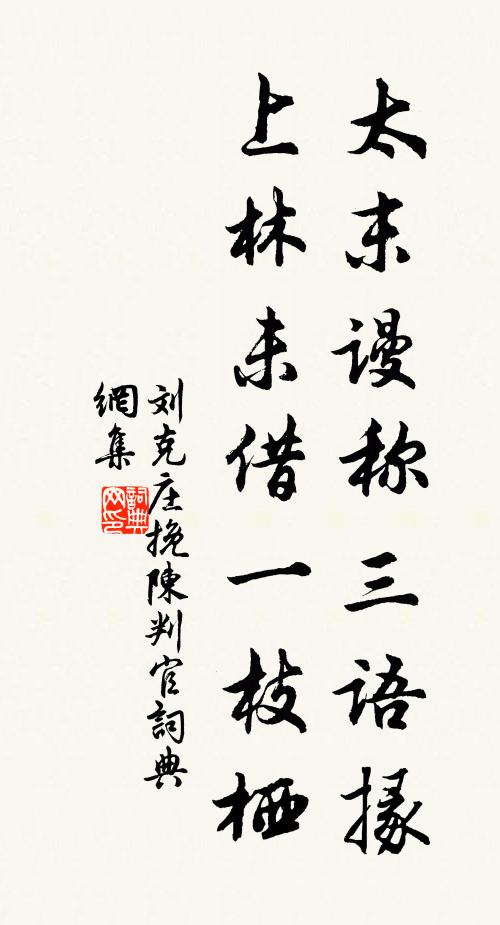 太末谩称三语掾
上林未借一枝栖
刘克庄挽陳判官詞典
網集
詞典网印